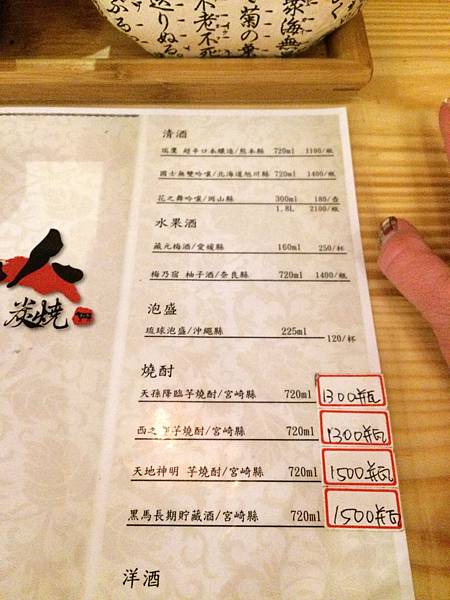 不老不死
菊の
清酒
瑞鷹 超辛口本釀造/熊本縣 720ml 1100/瓶
國士無雙吟釀/北海道旭川縣 720ml 1400/瓶
花之舞吟釀/岡山縣 300ml 180/壺
1.8L 2100/瓶
水果酒
藏元梅酒/愛媛縣 160ml 250/杯
梅乃宿 柚子酒/奈良縣 720ml 1400/瓶
泡盛
琉球泡盛/沖繩縣 225ml 120/杯
人
炭燒
燒酎
天孫降臨芋燒酎/宮崎縣 720ml 1300瓶
西之 芋燒酎/宮崎縣 720ml 1300瓶
天地神明 芋燒酎/宮崎縣 720ml 1500瓶
黑馬長期貯藏酒/宮崎縣 720ml 1500瓶
洋酒